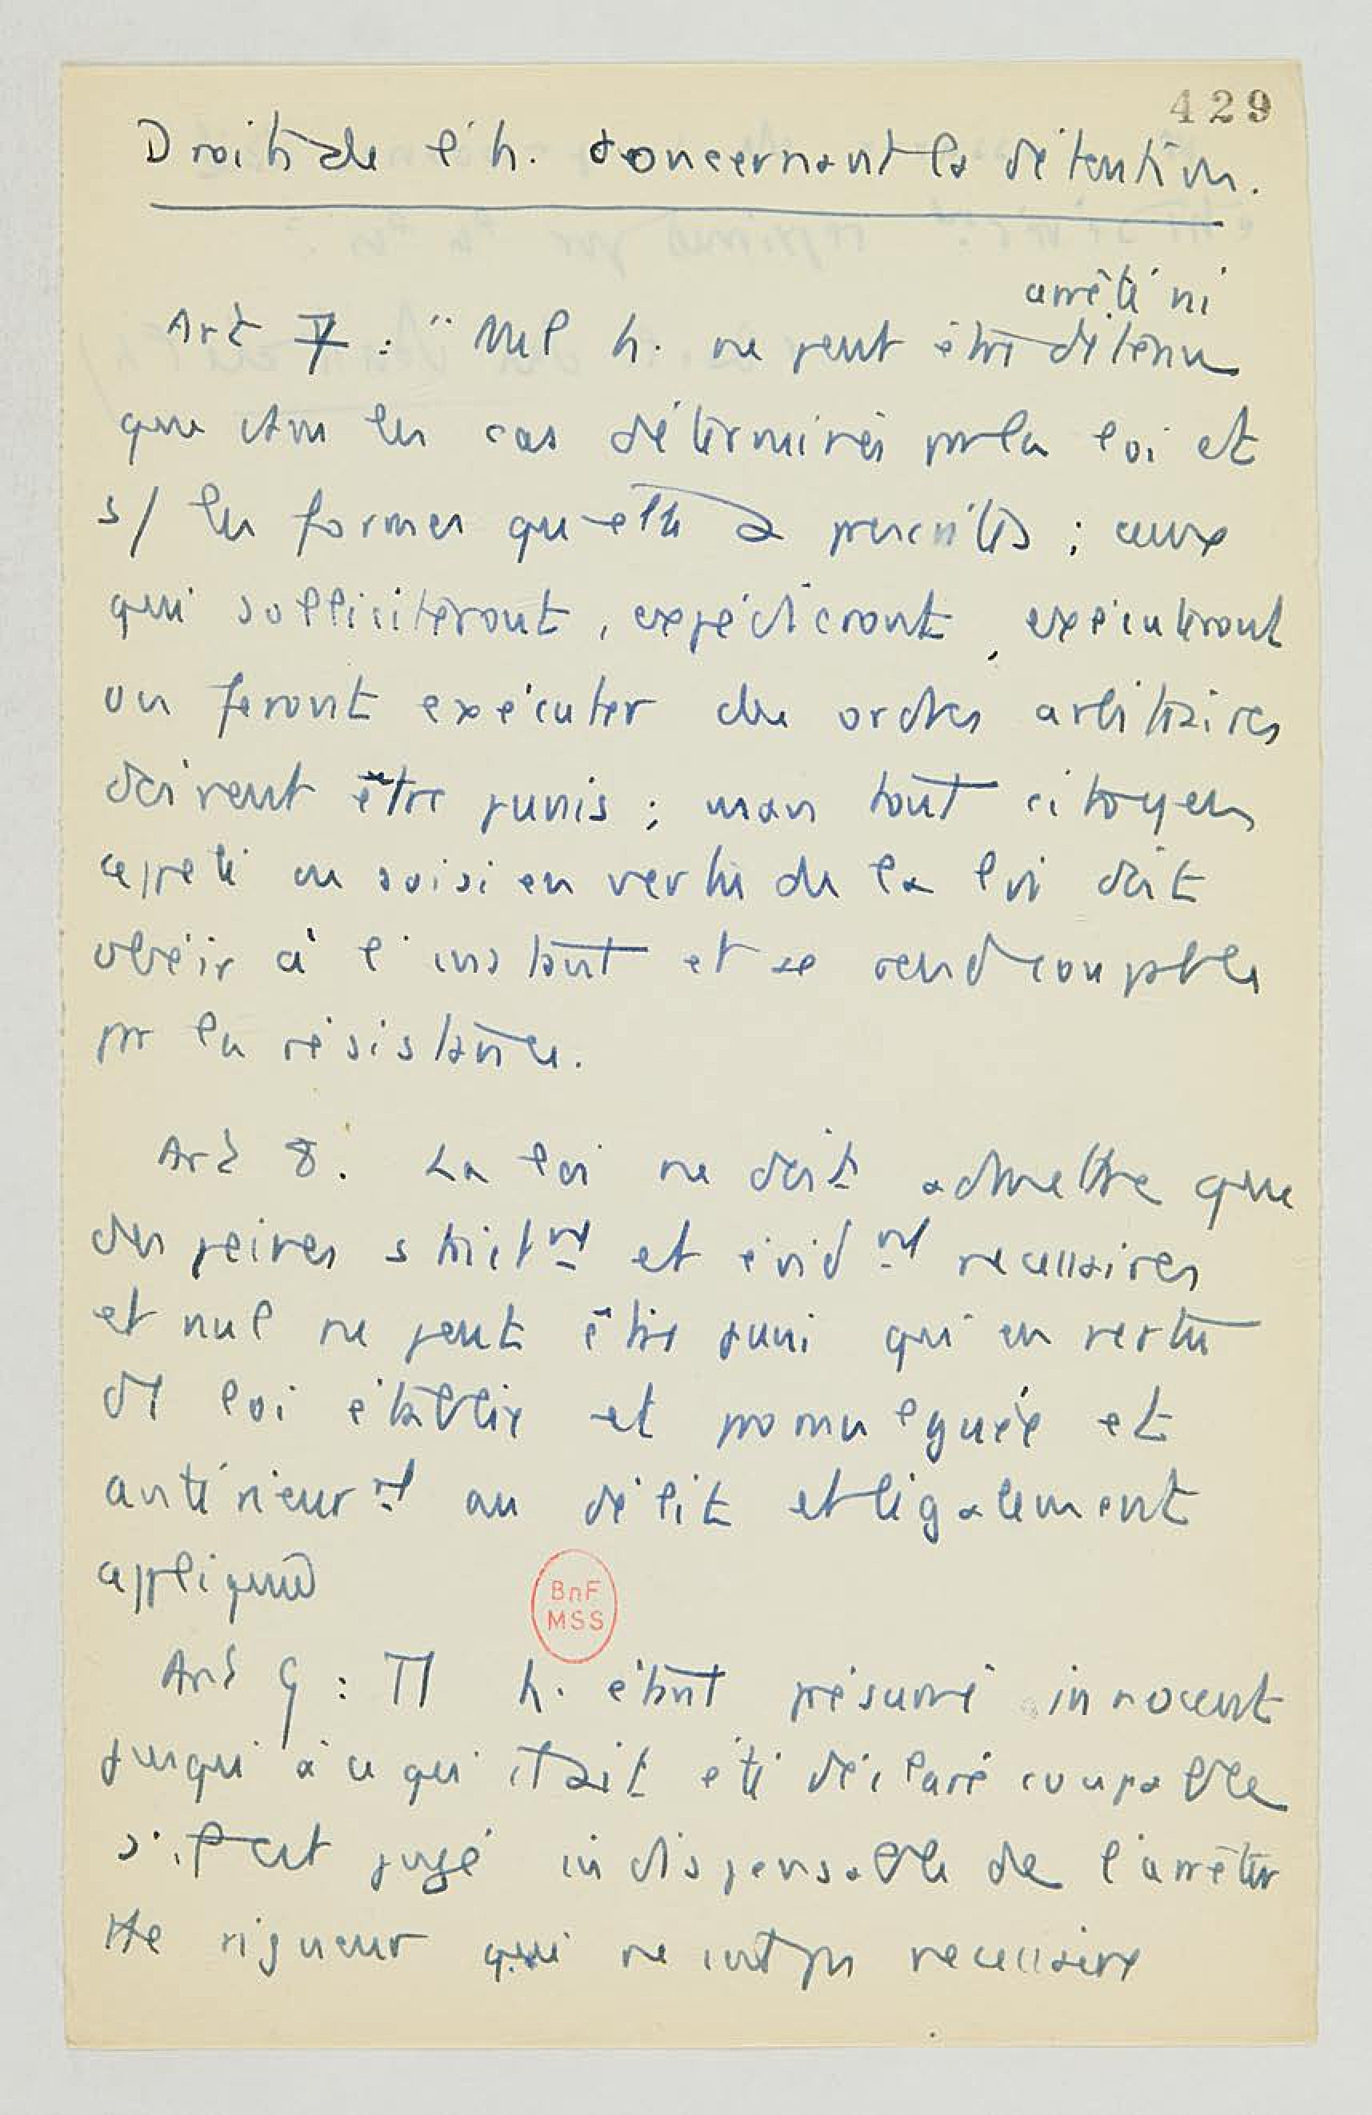 429
Droits de l'h. concernant la détention.
arrêté ni
Art 7 : " Nul h. ne peut être détenu
que dans les cas déterminés par la loi et
s/ les formes qu'elle a prescrites ; ceux
qui solliciteront, expédieront, exécuteront
ou feront exécuter des ordres arbitraires
doivent être punis ; mais tout citoyen
appelé ou saisi en vertu de la loi doit
obéir à l'instant et se rend coupable
pr la résistance.
Art 8. La loi ne doit admettre que
des peines strictmt et évidmt necessaires
et nul ne peut être puni qu'en vertu
d'1 loi établie et promulguée et
antérieurmt au délit et légalement
appliquée
Art 9 : Tt h. étant présumé innocent
jusqu'à ce qu'il ait été déclaré coupable
s'il est jugé indispensable de l'arrêter
tte rigueur qui ne serait pas necessaire
BnF
MSS